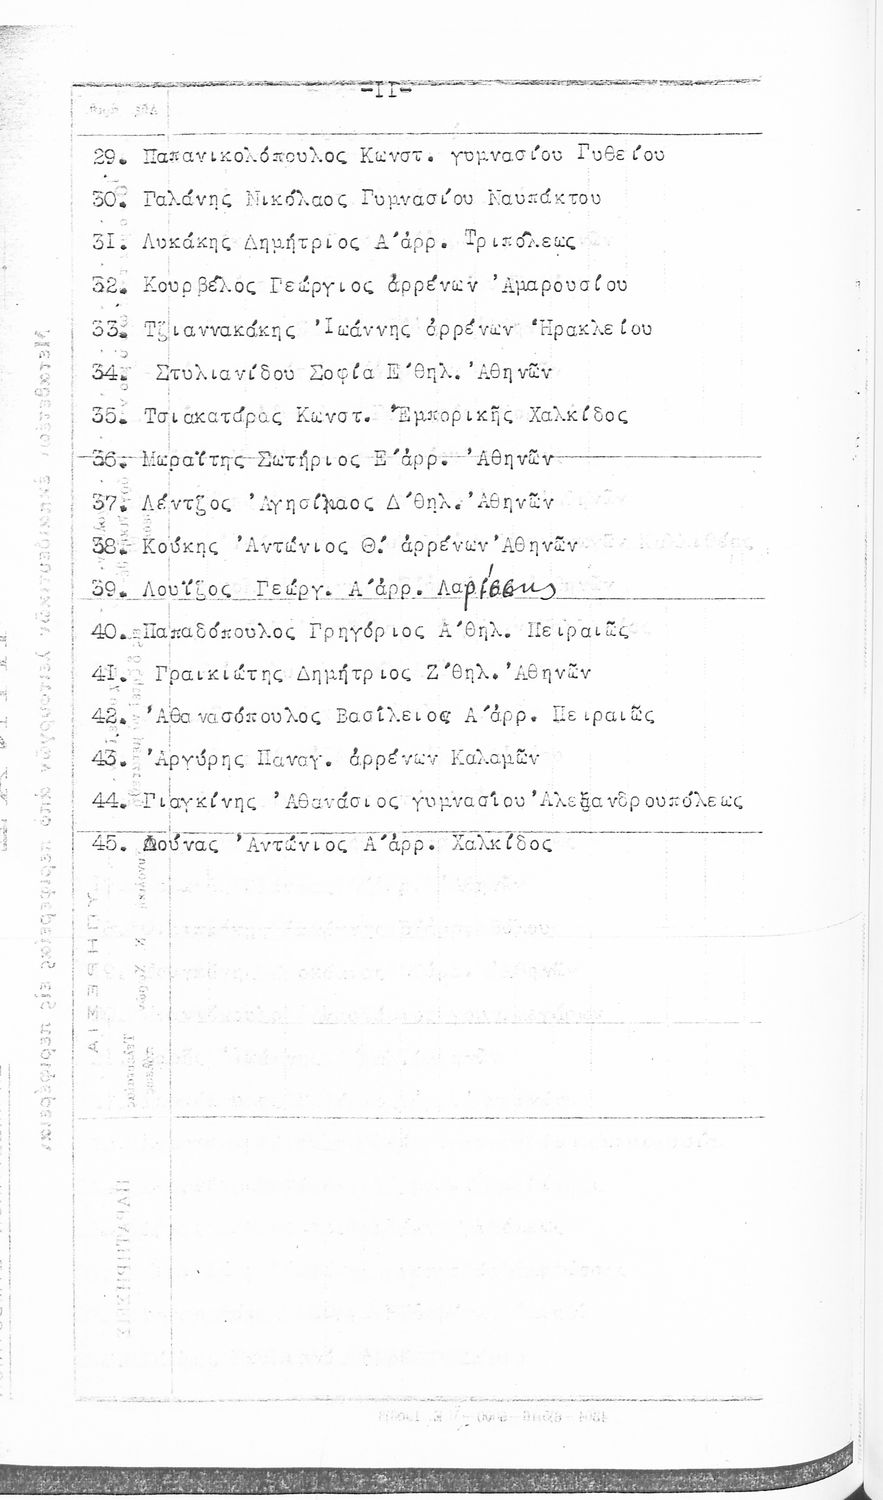 -II-
29. Παπανικολόπουλος Κωνστ. γυμνασίου Γυθείου
30. Γαλάνης Νικόλαος Γυμνασίου Ναυπάκτου
31. Λυκάκης Δημήτριος Α΄ἀρρ. Τριπόλεως
32. Κουρβέλος Γεώργιος ἀρρένων Ἀμαρουσίου
33. Τζιαννακάκης Ἰωάννης ἀρρένων Ἡρακλείου
34. Στυλιανίδου Σοφία Ε΄θηλ. Ἀθηνῶν
35. Τσιακατάρας Κωνστ. Ἐμπορικῆς Χαλκίδος
36. Μωραΐτης Σωτήριος Ε΄ἀρρ. Ἀθηνῶν
37. Λέντζος Ἀγησίλαος Δ΄θηλ. Ἀθηνῶν
38. Κούκης Ἀντώνιος Θ΄ ἀρρένων Ἀθηνῶν
39. Λουΐζος Γεώργ. Α΄ἀρρ. Λαρίσσης
40. Παπαδόπουλος Γρηγόριος Α΄θηλ. Πειραιῶς
41. Γραικιώτης Δημήτριος Ζ΄θηλ. Ἀθηνῶν
42. Ἀθανασόπουλος Βασίλειος Α΄ἀρρ. Πειραιῶς
43. Ἀργύρης Παναγ. ἀρρένων Καλαμῶν
44. Γιαγκίνης Ἀθανάσιος γυμνασίου Ἀλεξανδρουπόλεως
45. Δούνας Ἀντώνιος Α΄ἀρρ. Χαλκίδος